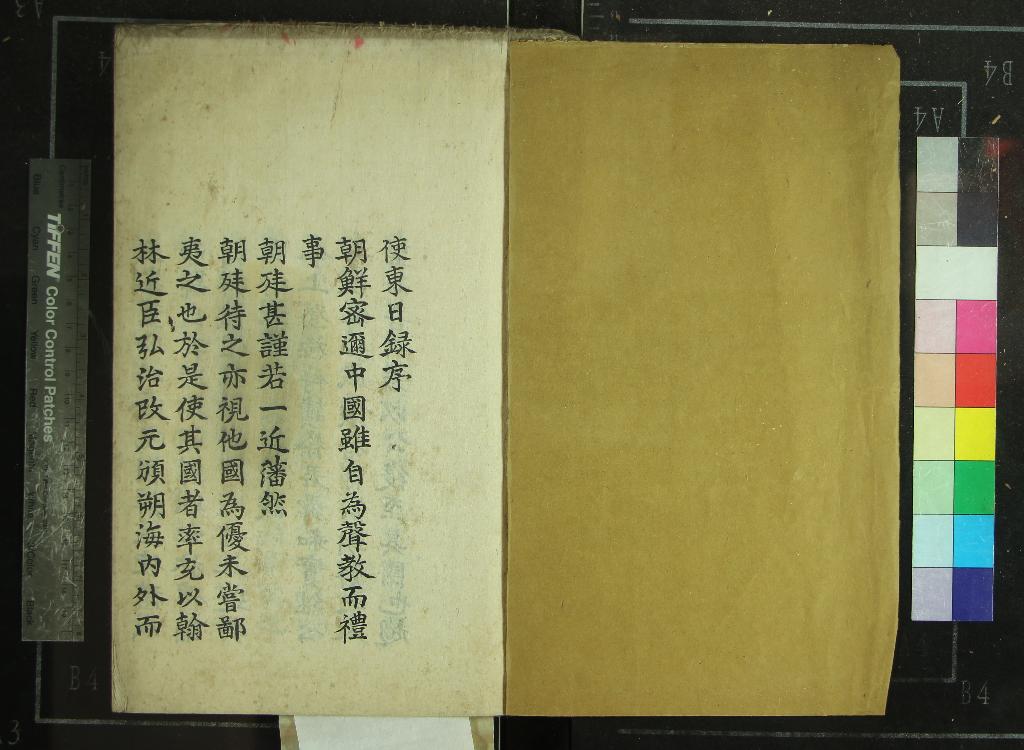 使東日録序
朝鮮密邇中國雖自為聲教而禮
事
朝廷甚謹若一近藩然
朝廷待之亦視他國為優未嘗鄙
夷之也於是使其國者率充以翰
林近臣弘治改元頒朔海内外而
TIFFEN Color Control Patches
Blue
Cyan
Green
Yellow
Red
Black
A4
B4
B4
B4
A3